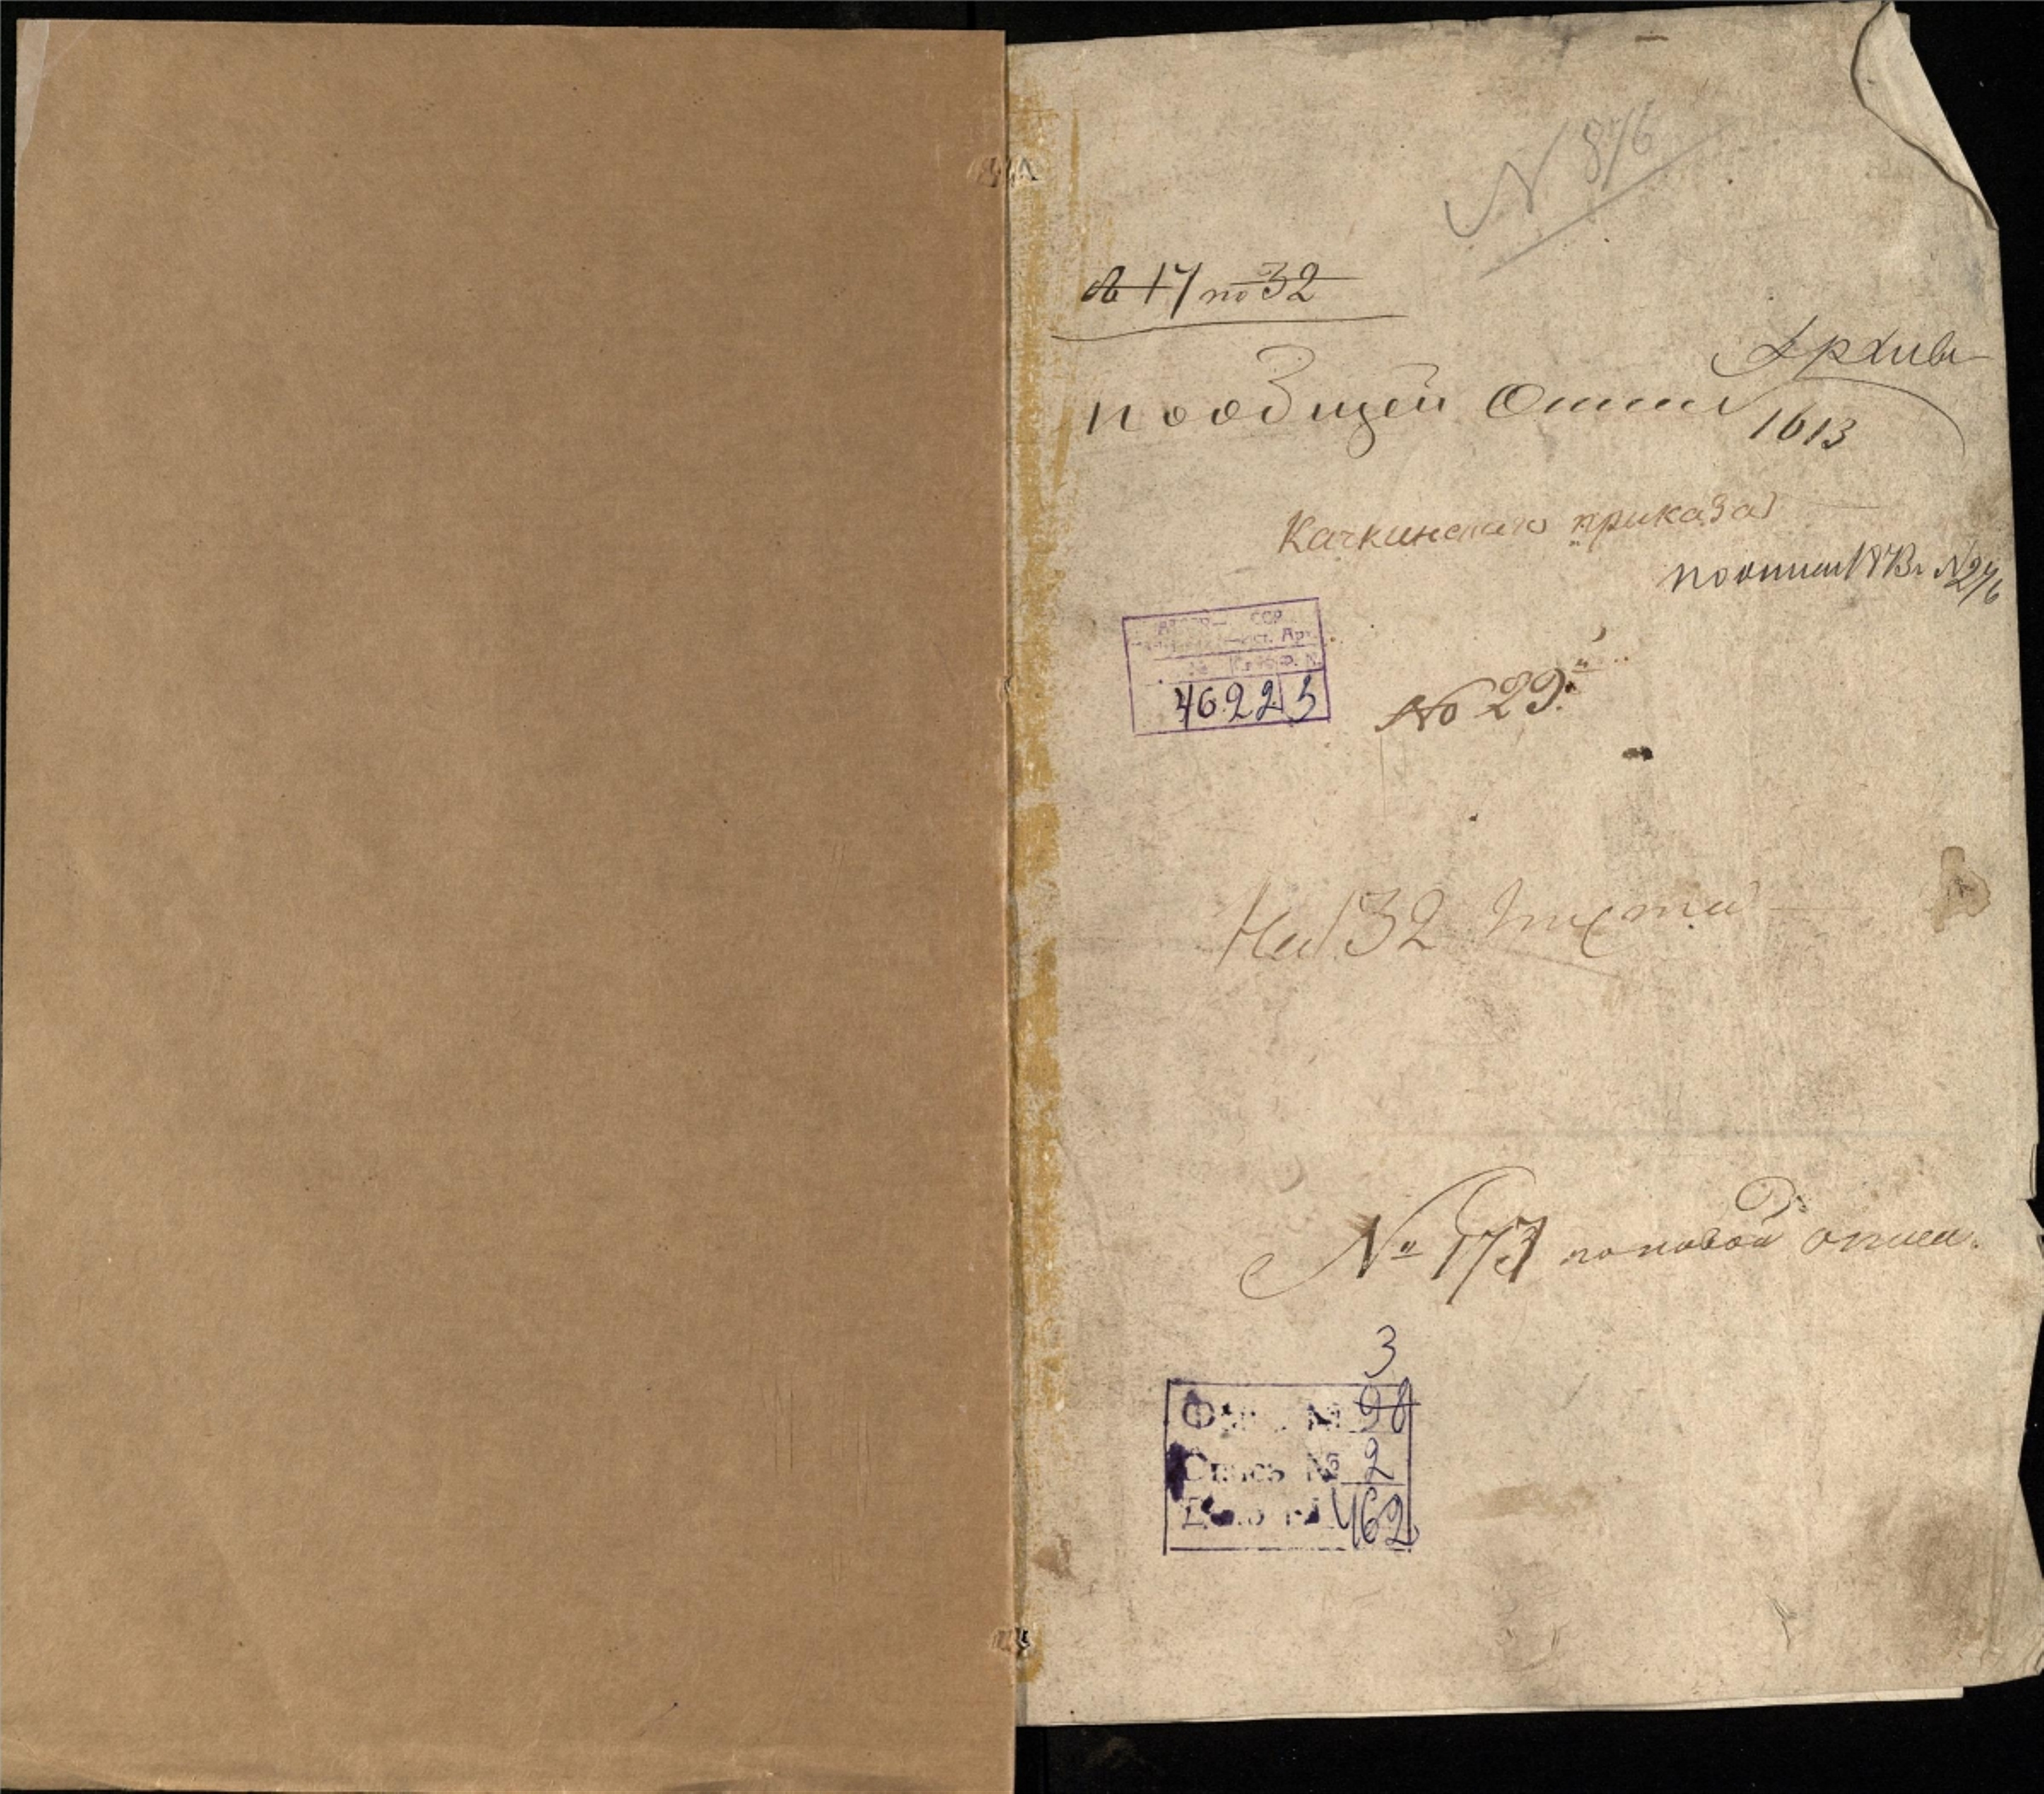 N 876
№ 17 по 32
Архива
пообщей Описи
1613
Качкинскаго приказа
поописи 1873 г. N 276
46225
№ 29й
На 132 листа
№ 173 поновой описи.
3
Фонд № 98
Опись № 2
Дело № 462